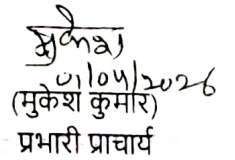 मुकेश
01/04/2026
(मुकेश कुमार)
प्रभारी प्राचार्य